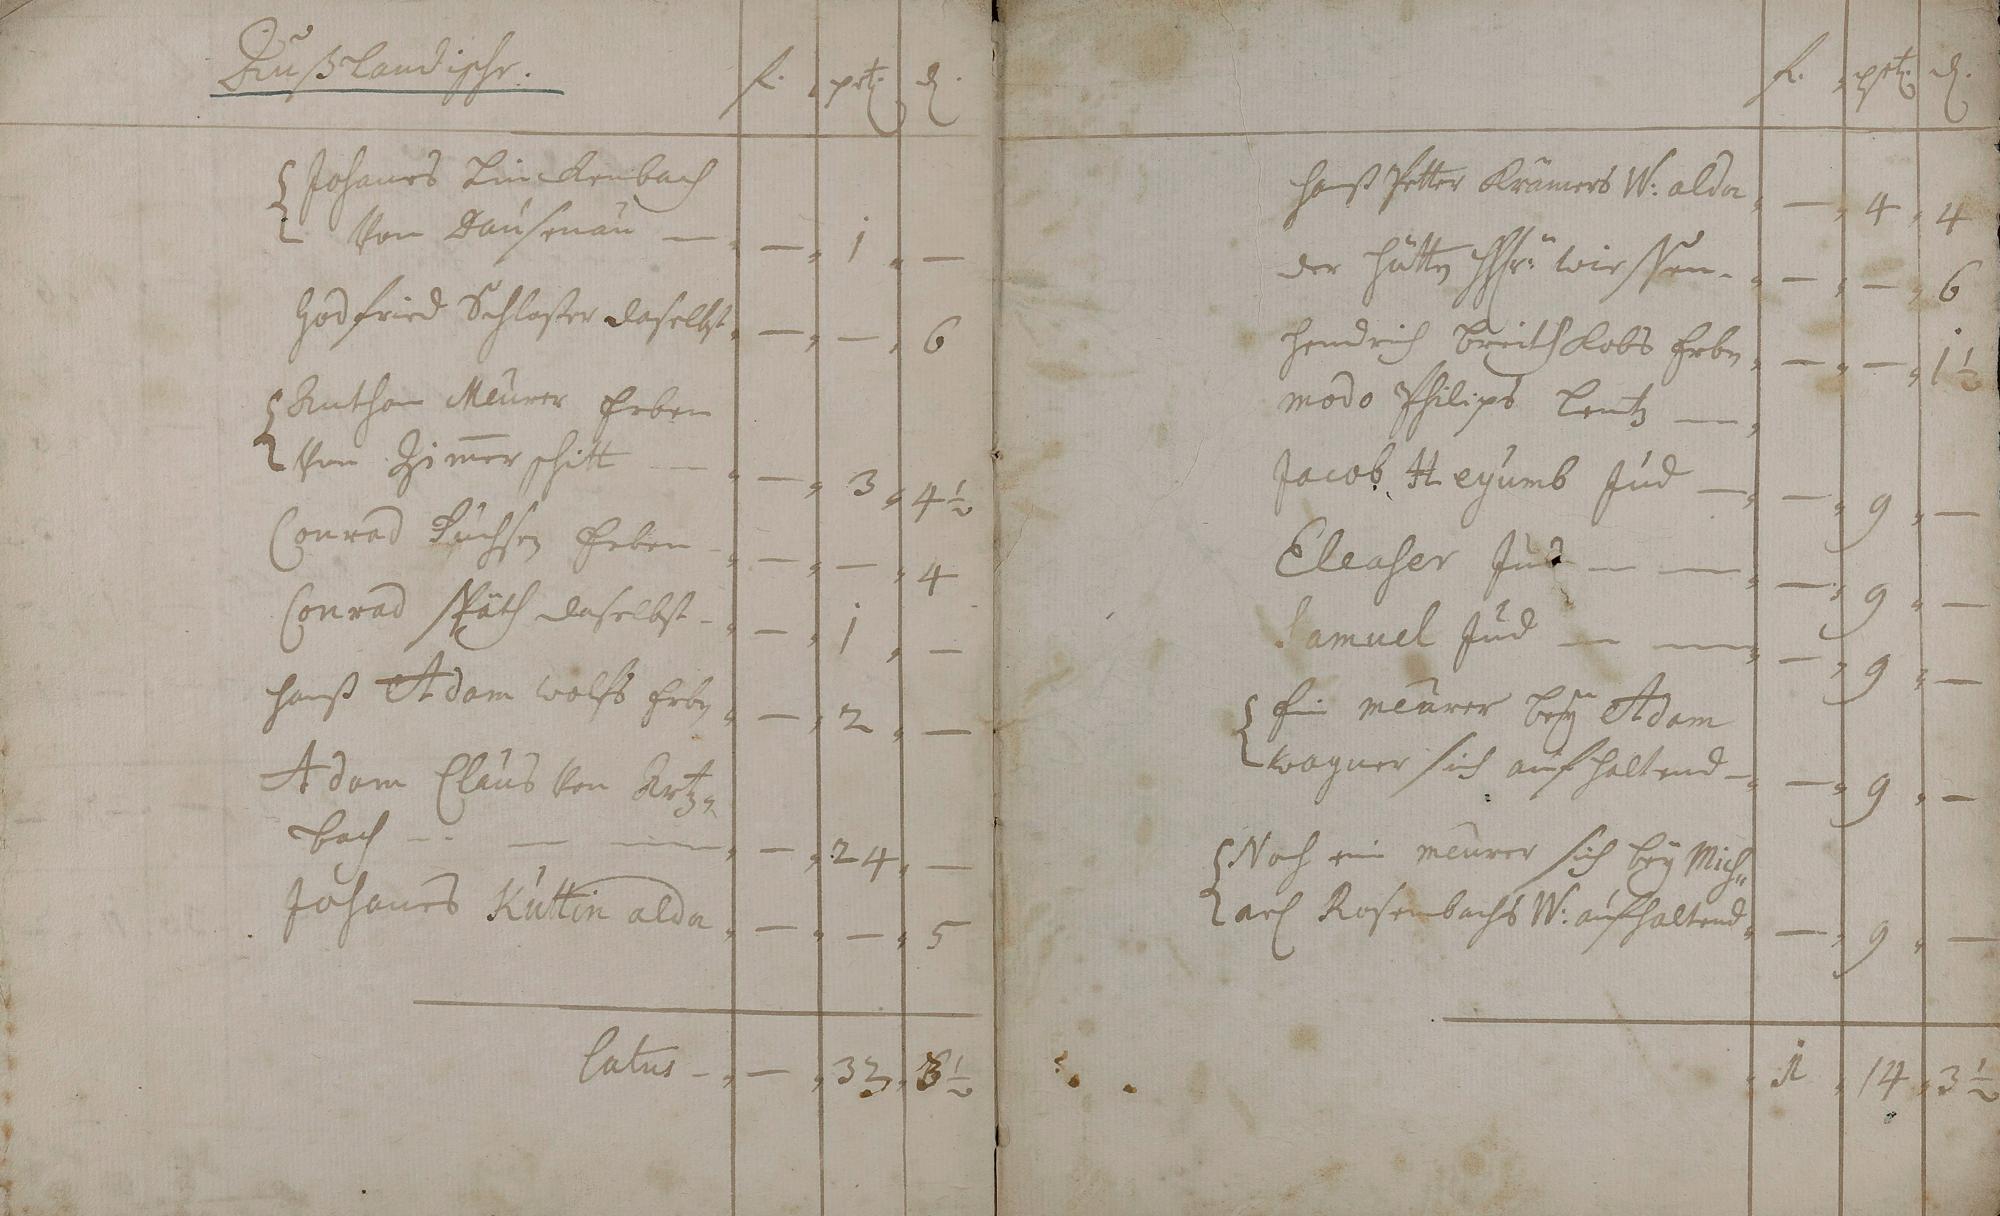 Außlandische.
f. ptz. d.
Johanes Linckenbach
Von Dausenau — — 1 —
Godfried Schlosser daselbst — — 6
Anthon Meurer Erben
Von Zimerschitt — — 3 4½
Conrad Fuchsen Erben — — — 4
Conrad Späth daselbst — — 1 —
Hanß Adam Wolffs Erbn — 2 —
Adam Claus Von Artz=
bach — — — — 24 —
Johanes Küttin alda — — 5
Latus — — 33 8½
f. ptz. d.
Hanß Petter Krämers W: alda — 4 4
der Hütten wiessen — — — 6
Hendrich Breithkobs Erbn — — 1½
modo Philips Lentz —
Jacob Heyumb Jud — — 9 —
Eleaser Jud — — — 9 —
Samuel Jud — — — 9 —
Ein meurer bey Adam
Wagner sich aufhaltend — — 9 —
Noch ein meurer sich bey Mich=
ael Rosenbachs W: aufhaltend — 9 —
1 14 3½